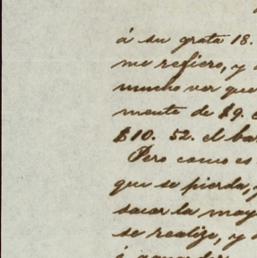 á su grata 18.
me refiero, y
mucho ver que
mente de $9.
$10. 52. el ba
Pero como es
que se pierda,
sacar la may
se realize, y
á aguardar